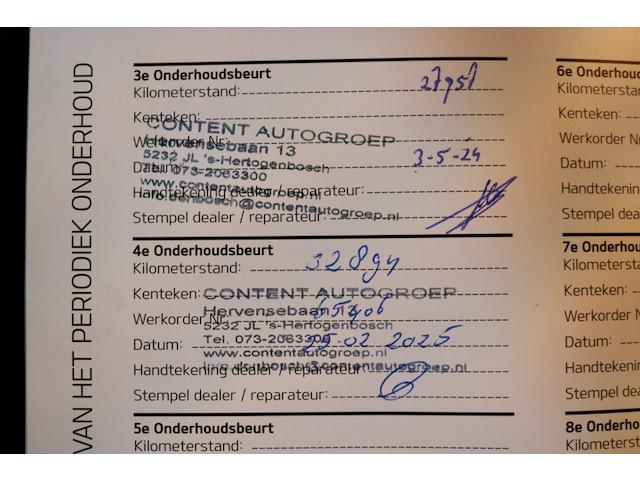 VAN HET PERIODIEK ONDERHOUD
3e Onderhoudsbeurt
Kilometerstand: 27951
Kenteken:
CONTENT AUTOGROEP
Werkorder Nr:
Hervensebaan 13
5232 JL 's-Hertogenbosch
Datum: 3-5-24
Tel. 073-2063300
www.contentautogroep.nl
Handtekening dealer / reparateur:
@contentautogroep.nl
Stempel dealer / reparateur:
4e Onderhoudsbeurt
Kilometerstand: 32894
Kenteken:
CONTENT AUTOGROEP
Hervensebaan 13
Werkorder Nr: 65906
5232 JL 's-Hertogenbosch
Tel. 073-2063300
Datum: 29.02 2025
www.contentautogroep.nl
Handtekening dealer / reparateur:
@contentautogroep.nl
Stempel dealer / reparateur:
5e Onderhoudsbeurt
Kilometerstand:
6e Onderhoud
Kilometerstan
Kenteken:
Werkorder N
Datum:
Handtekenin
Stempel dea
7e Onderhou
Kilometersta
Kenteken:
Werkorder N
Datum:
Handtekenin
Stempel dea
8e Onderho
Kilometerst